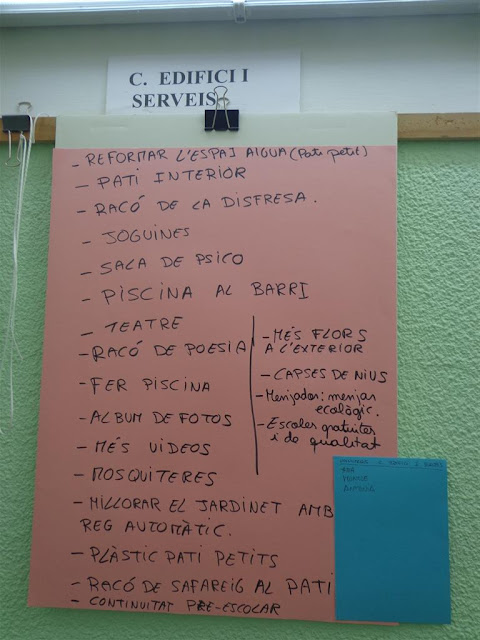 C. EDIFICI I
SERVEIS
- REFORMAR L'ESPAI AIGUA (Pati petit)
- PATI INTERIOR
- RACÓ DE LA DISFRESA.
- JOGUINES
- SALA DE PSICO
- PISCINA AL BARRI
- TEATRE
- RACÓ DE POESIA
- FER PISCINA
- ALBUM DE FOTOS
- MÉS VIDEOS
- MOSQUITERES
- MILLORAR EL JARDINET AMB
REG AUTOMÀTIC.
- PLÀSTIC PATI PETITS
- RACÓ DE SAFAREIG AL PATI
- CONTINUITAT PRE-ESCOLAR
- MÉS FLORS
A L'EXTERIOR
- CAPSES DE NIUS
- Menjador: menjar
ecològic.
- Escoles gratuïtes
i de qualitat